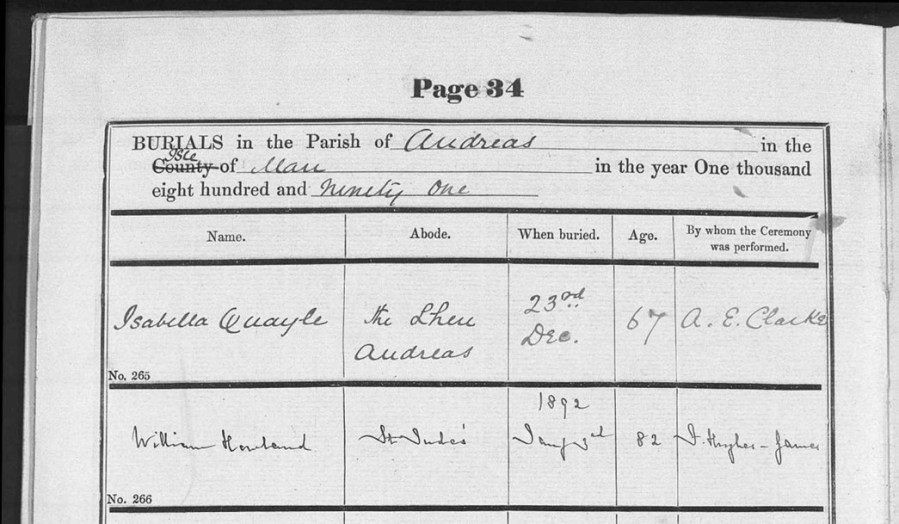 Page 34
BURIALS in the Parish of Andreas in the
Isle
County of Man in the year One thousand
eight hundred and Ninety One
Name. Abode. When buried. Age. By whom the Ceremony was performed.
Isabella Quayle the Lhen Andreas 23rd Dec. 67 A. E. Clarke
No. 265
William Howland St Jude's 1892 Jany 3rd 82 Hughes-James
No. 266